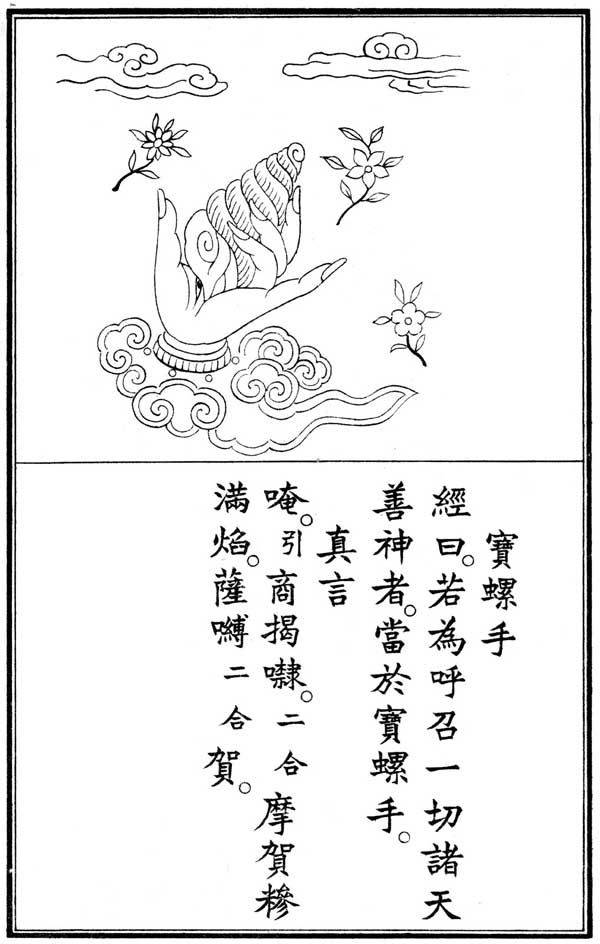 寶螺手
經曰。若為呼召一切諸天
善神者。當於寶螺手。
真言
唵。引商揭㘑。二合摩賀糝
滿焰。薩嚩二合賀。